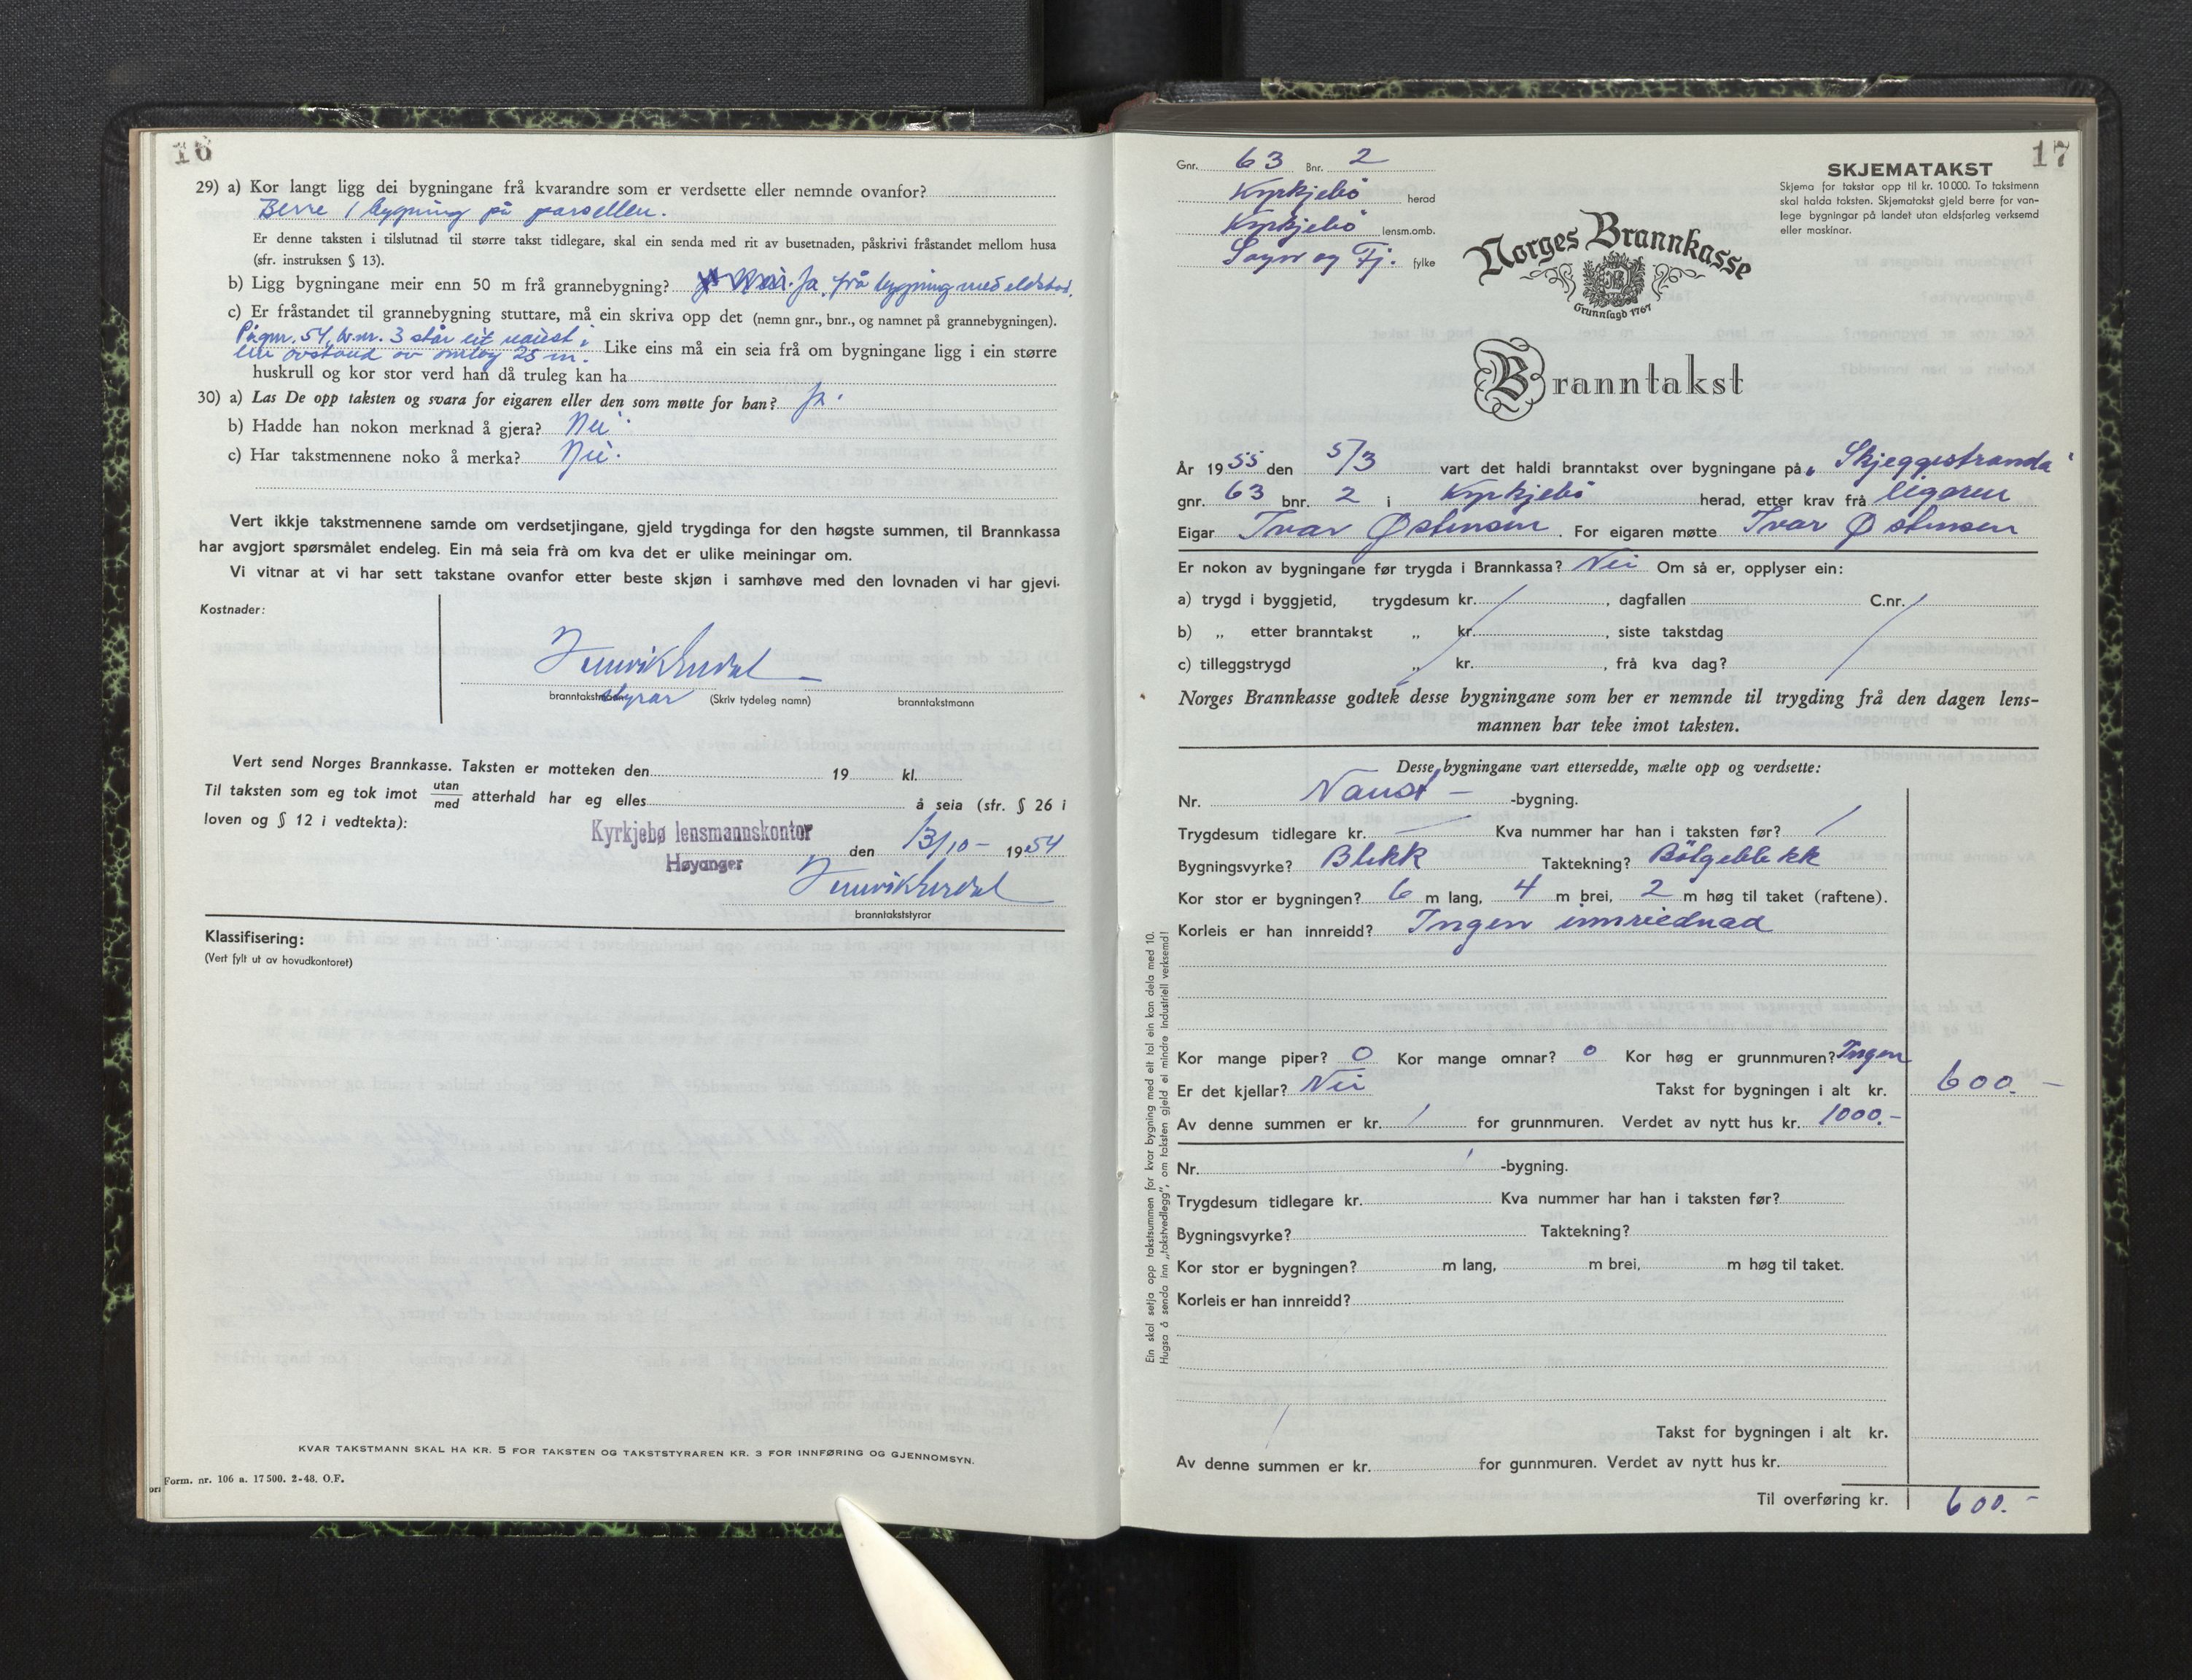 16
29) a) Kor langt ligg dei bygningane frå kvarandre som er verdsette eller nemnde ovanfor?
Berre 1 bygning på parsellen.
Er denne taksten i tilslutnad til større takst tidlegare, skal ein senda med rit av busetnaden, påskrivi fråstandet mellom husa
(sfr. instruksen § 13).
b) Ligg bygningane meir enn 50 m frå grannebygning? Ja, frå bygning med eldstad.
c) Er fråstandet til grannebygning stuttare, må ein skriva opp det (nemn gnr., bnr., og namnet på grannebygningen).
På gnr. 54, b.nr. 3 står eit naust i
ein avstand av omlag 25 m. Like eins må ein seia frå om bygningane ligg i ein større
huskrull og kor stor verd han då truleg kan ha
30) a) Las De opp taksten og svara for eigaren eller den som møtte for han? Ja.
b) Hadde han nokon merknad å gjera? Nei.
c) Har takstmennene noko å merka? Nei.
Vert ikkje takstmennene samde om verdsetjingane, gjeld trygdinga for den høgste summen, til Brannkassa
har avgjort spørsmålet endeleg. Ein må seia frå om kva det er ulike meiningar om.
Vi vitnar at vi har sett takstane ovanfor etter beste skjøn i samhøve med den lovnaden vi har gjevi.
Kostnader:
branntakstmann styrar (Skriv tydeleg namn) branntakstmann
Vert send Norges Brannkasse. Taksten er motteken den 19 kl.
Til taksten som eg tok imot utan/med atterhald har eg elles å seia (sfr. § 26 i
loven og § 12 i vedtekta):
Kyrkjebø lensmannskontor
Høyanger
den 13/10 - 1954
branntakststyrar
Klassifisering:
(Vert fylt ut av hovudkontoret)
KVAR TAKSTMANN SKAL HA KR. 5 FOR TAKSTEN OG TAKSTSTYRAREN KR. 3 FOR INNFØRING OG GJENNOMSYN.
Form. nr. 106 a. 17500. 2-48. O.F.
17
Gnr. 63 Bnr. 2
Kyrkjebö herad
Kyrkjebö lensm.omb.
Sogn og Fj. fylke
SKJEMATAKST
Skjema for takstar opp til kr. 10000. To takstmenn
skal halda taksten. Skjematakst gjeld berre for van-
lege bygningar på landet utan eldsfarleg verksemd
eller maskinar.
Norges Brannkasse
Grunnlagd 1767
Branntakst
År 1955 den 5/3 vart det haldi branntakst over bygningane på „Skjeggestranda"
gnr. 63 bnr. 2 i Kyrkjebö herad, etter krav frå eigaren
Eigar Ivar Østensen. For eigaren møtte Ivar Østensen
Er nokon av bygningane før trygda i Brannkassa? Nei Om så er, opplyser ein:
a) trygd i byggjetid, trygdesum kr. , dagfallen C.nr.
b) „ etter branntakst „ kr. , siste takstdag
c) tilleggstrygd „ kr. , frå kva dag?
Norges Brannkasse godtek desse bygningane som her er nemnde til trygding frå den dagen lens-
mannen har teke imot taksten.
Desse bygningane vart ettersedde, mælte opp og verdsette:
Nr. Naust - -bygning.
Trygdesum tidlegare kr. Kva nummer har han i taksten før?
Bygningsvyrke? Blekk Taktekning? Bölgeblekk
Kor stor er bygningen? 6 m lang, 4 m brei, 2 m høg til taket (raftene).
Korleis er han innreidd? Ingen innreidnad
Kor mange piper? 0 Kor mange omnar? 0 Kor høg er grunnmuren? Ingen
Er det kjellar? Nei Takst for bygningen i alt kr. 600.-
Av denne summen er kr. / for grunnmuren. Verdet av nytt hus kr. 1000.-
Nr. -bygning.
Trygdesum tidlegare kr. Kva nummer har han i taksten før?
Bygningsvyrke? Taktekning?
Kor stor er bygningen? m lang, m brei, m høg til taket.
Korleis er han innreidd?
Takst for bygningen i alt kr.
Av denne summen er kr. for gunnmuren. Verdet av nytt hus kr.
Til overføring kr. 600.-
Ein skal setja opp takstsummen for kvar bygning med eit tal ein kan dela med 10.
Hugsa å senda inn „takstvedlegg", om taksten gjeld ei mindre industriell verksemd!